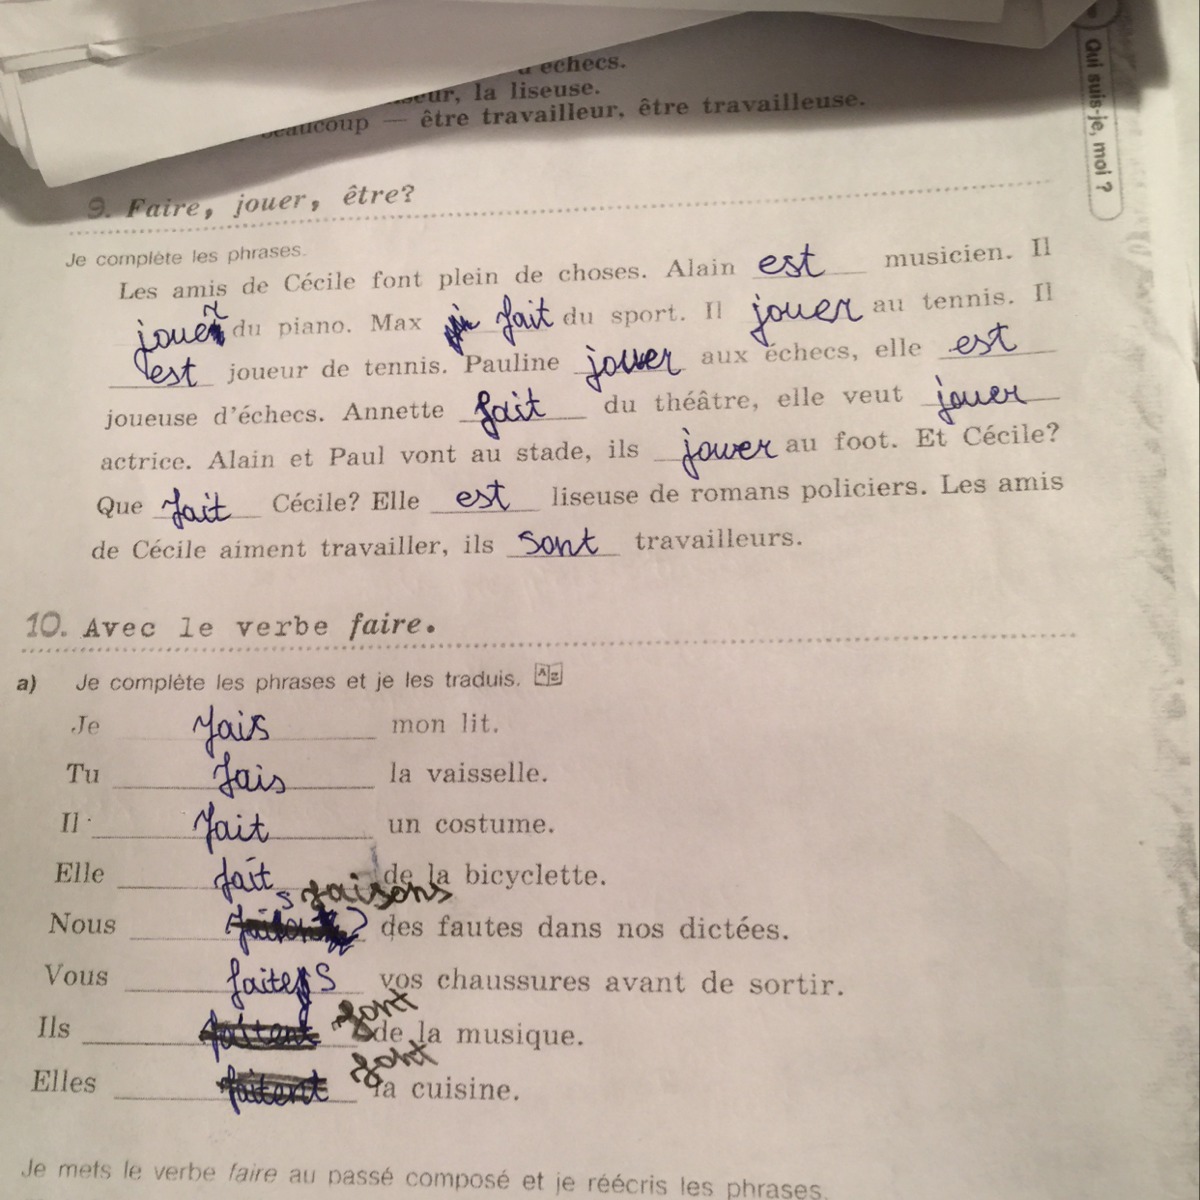 d'échecs.
la liseuse.
beaucoup — être travailleur, être travailleuse.
Qui suis-je, moi ?
9. Faire, jouer, être?
Je complète les phrases.
Les amis de Cécile font plein de choses. Alain est musicien. Il
jouer du piano. Max fait du sport. Il jouer au tennis. Il
est joueur de tennis. Pauline jouer aux échecs, elle est
joueuse d'échecs. Annette fait du théâtre, elle veut jouer
actrice. Alain et Paul vont au stade, ils jouer au foot. Et Cécile?
Que fait Cécile? Elle est liseuse de romans policiers. Les amis
de Cécile aiment travailler, ils sont travailleurs.
10. Avec le verbe faire.
a) Je complète les phrases et je les traduis.
Je fais mon lit.
Tu fais la vaisselle.
Il fait un costume.
Elle fait de la bicyclette.
Nous faisons des fautes dans nos dictées.
Vous faites vos chaussures avant de sortir.
Ils font de la musique.
Elles font la cuisine.
Je mets le verbe faire au passé composé et je réécris les phrases.